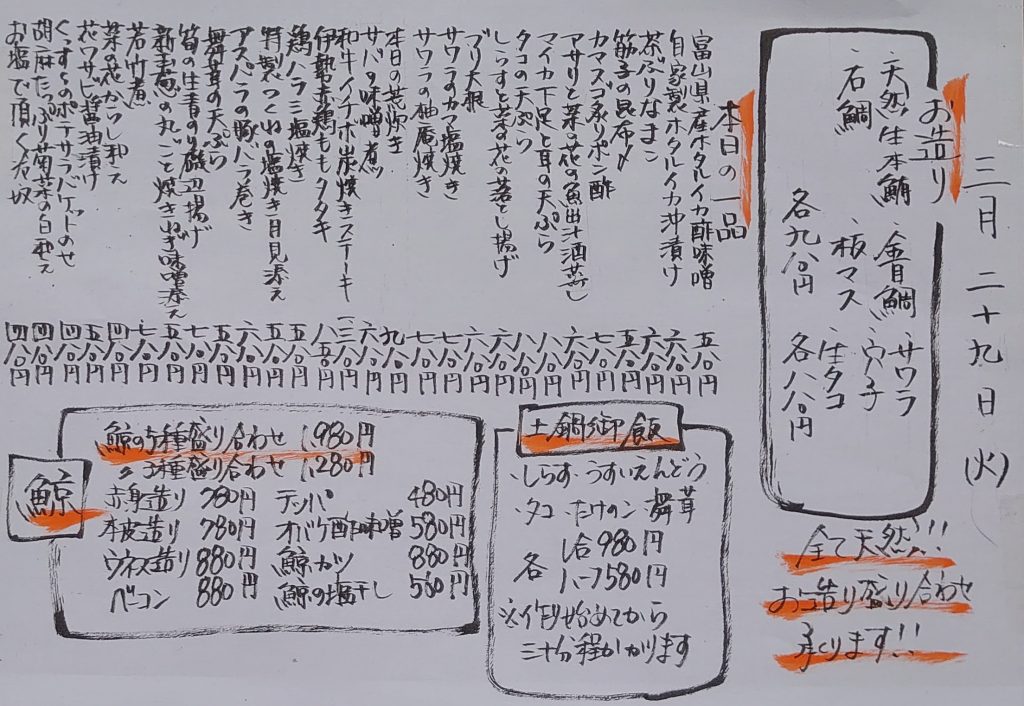 三月二十九日(火)
お造り
・天然生本鮪 ・金目鯛 ・サワラ
・石鯛 ・板マス ・穴子
・生タコ
各九八〇円 各八八〇円
全て天然!!
お造り盛り合わせ
承ります!!
本日の一品
富山県産ホタルイカ酢味噌 五八〇円
自家製ホタルイカ沖漬け 六八〇円
茶ぶりなまこ 六八〇円
筋子の昆布〆 五八〇円
カマスゴ炙りポン酢 七八〇円
アサリと菜の花の魚出汁酒蒸し 六八〇円
マイカ下足と耳の天ぷら 八八〇円
タコの天ぷら 八八〇円
しらすと菜の花の落とし揚げ 六八〇円
ブリ大根 六八〇円
サワラのカマ塩焼き 七八〇円
サワラの柚庵焼き 七八〇円
本日の荒炊き 九八〇円
サバの味噌煮 六八〇円
和牛イチボ炭焼きステーキ 一三八〇円
伊勢赤鶏ももタタキ 八五〇円
鶏ハラミ塩焼き 五八〇円
特製つくねの塩焼き月見添え 七八〇円
アスパラの豚バラ巻き 六八〇円
舞茸の天ぷら 五八〇円
筍の生青のり磯辺揚げ 七八〇円
新玉葱の丸ごと焼きねぎ味噌添え 五八〇円
若竹煮 七八〇円
菜の花からし和え 四八〇円
花ワサビ醤油漬け 五八〇円
ポテサラバケットのせ 四八〇円
胡麻たっぷり菊菜の白和え 四八〇円
お塩で頂く冷奴 四八〇円
土鍋御飯
・しらす・うすいえんどう
・タコ・たけのこ・舞茸
各 1合980円
ハーフ580円
※作り始めてから
三十分程かかります
鯨
鯨の5種盛り合わせ 1,980円
〃3種盛り合わせ 1,280円
赤身造り 780円 テッパ 480円
本皮造り 780円 オバケ酢味噌 580円
ウネス造り 880円 鯨カツ 880円
ベーコン 880円 鯨の塩干し 560円